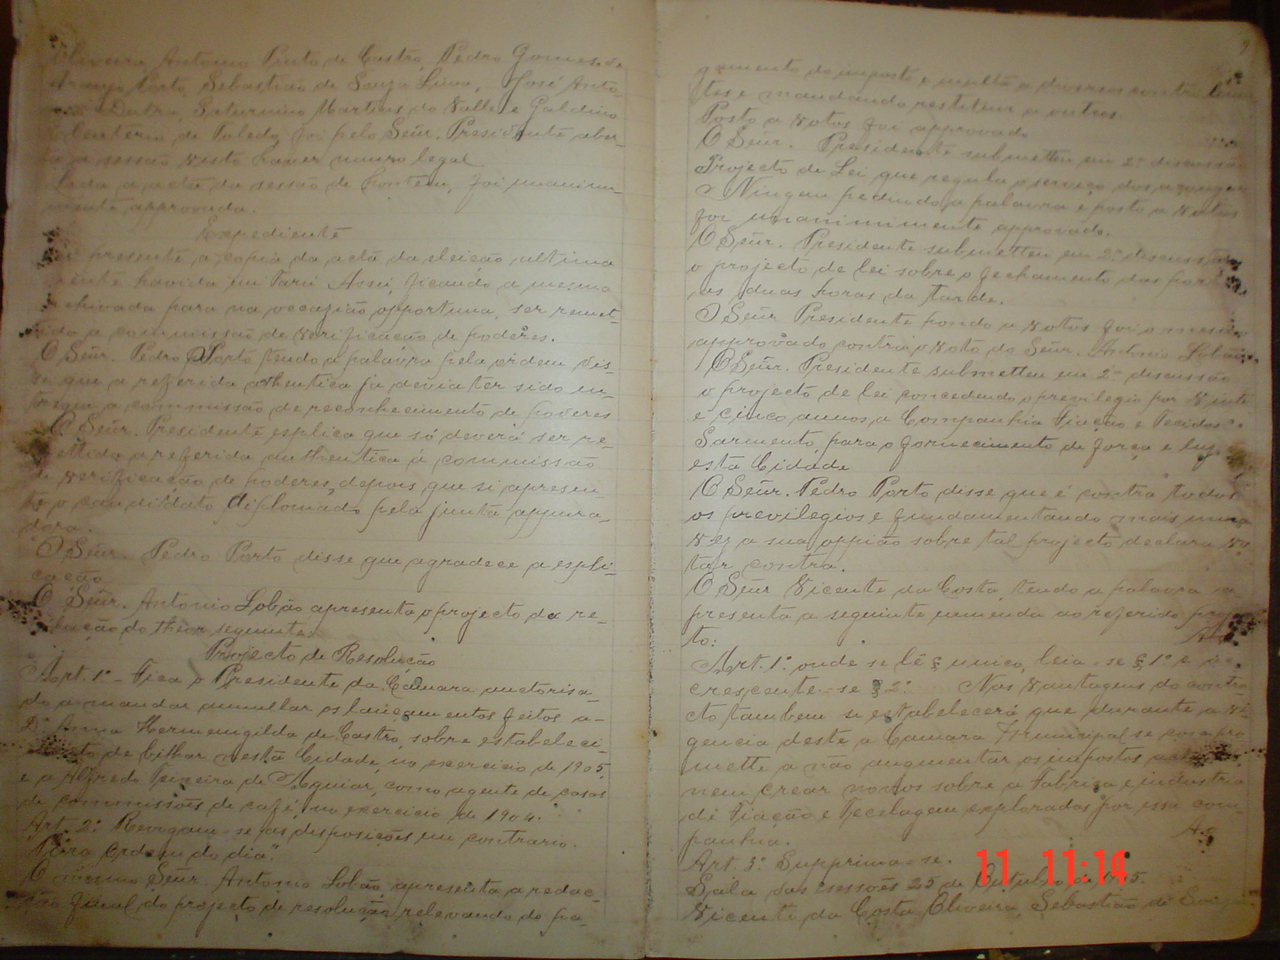 Oliveira Antonio Pinto de Castro, Pedro Gomes de
Araujo Porto, Sebastião de Souza Lima, José Anto-
Dutra, Saturnino Martins do Valle e Galdino
de Toledo, foi pelo Señr. Presidente aber-
ta a sessão visto haver numro legal.
Lida a acta da sessão de hontem, foi unanim-
mente approvada.
Expediente
presente a copia da acta da eleicão ultima
mente havida em Assú, ficando a mesma
archivada para na occazião opportuna, ser remet-
tida a commissão de verificacão de poderes.
O Señr. Pedro Porto tendo a palavra pela ordem dis-
se que a referida authentica ja devia ter sido en-
tregue a commissão de reconhecimento de poderes
O Señr. Presidente explica que só deverá ser re-
mettida a referida authentica á commissão
de verificacão de poderes, depois que si apresen-
te o candidato diplomado pela junta appura-
dora.
O Señr. Pedro Porto disse que agradece a expli-
cacão
O Señr. Antonio Lobão apresenta o projecto de re-
solucão do theor seguinte.
Projecto de Resolucão
Art. 1º - Fica o Presidente da Camara auctorisa-
do a mandar annullar os lancamentos feitos a-
Dª Anna Hermengilda de Castro, sobre estabeleci-
mento de bilhar nesta Cidade, no exercicio de 1905
e a Alfredo Teixeira de Aguiar, como agente de casas
de commissões de café, no exercicio de 1904.
Art. 2º Revogam-se as disposicões em contrario.
"Para Ordem do dia".
O mesmo Señr. Antonio Lobão apresenta a redac-
cão final do projecto de resolucão relevando do pa-
gamento do imposto e multa a diversos contribuin
tes e mandando restetuir a outros.
Posto a votos foi approvado
O Señr. Presidente submetteu em 2ª discussão
Projecto de Lei que regula o servico dos acougues
Ninguem pedindo a palavra e posto a votos
foi unanimimente approvado.
O Señr. Presidente submetteu em 2ª discussão
o projecto de lei sobre o fechamento das portas
as duas horas da tarde.
O Señr Presidente pondo a votos foi o mesmo
approvado contra o voto do Señr. Antonio Lobão
O Señr. Presidente submetteu em 2ª discussão
o projecto de lei concedendo o previlegio por vinte
e cinco annos a Companhia Fiacão e Tecidos
Sarmento, para o fornecimento de forca e luz
esta Cidade
O Señr. Pedro Porto disse que é contra todos
os previlegios e fundamentando mais uma
vez a sua oppião sobre tal projecto declara vo-
tar contra.
O Señr Vicente da Costa, tendo a palavra a-
presenta a seguinte emenda ao referido projec-
to:
Art. 1º onde se lê § unico, leia-se § 1º e ac-
crescente-se § 2º Nas vantagens do contra-
cto tambem si estabelecerá que durante a vi-
gencia deste a Camara Municipal se compro
mette a não augmentar os impostos
nem crear novos sobre a Fabrica e industria
di Fiacão e Tecelagem exploradas por essa com-
panhia.
Art. 3º Supprima-se.
Sala das sessões 25 de Outubro de 1905.
Vicente da Costa Oliveira, Sebastião de Souza
11 11:14